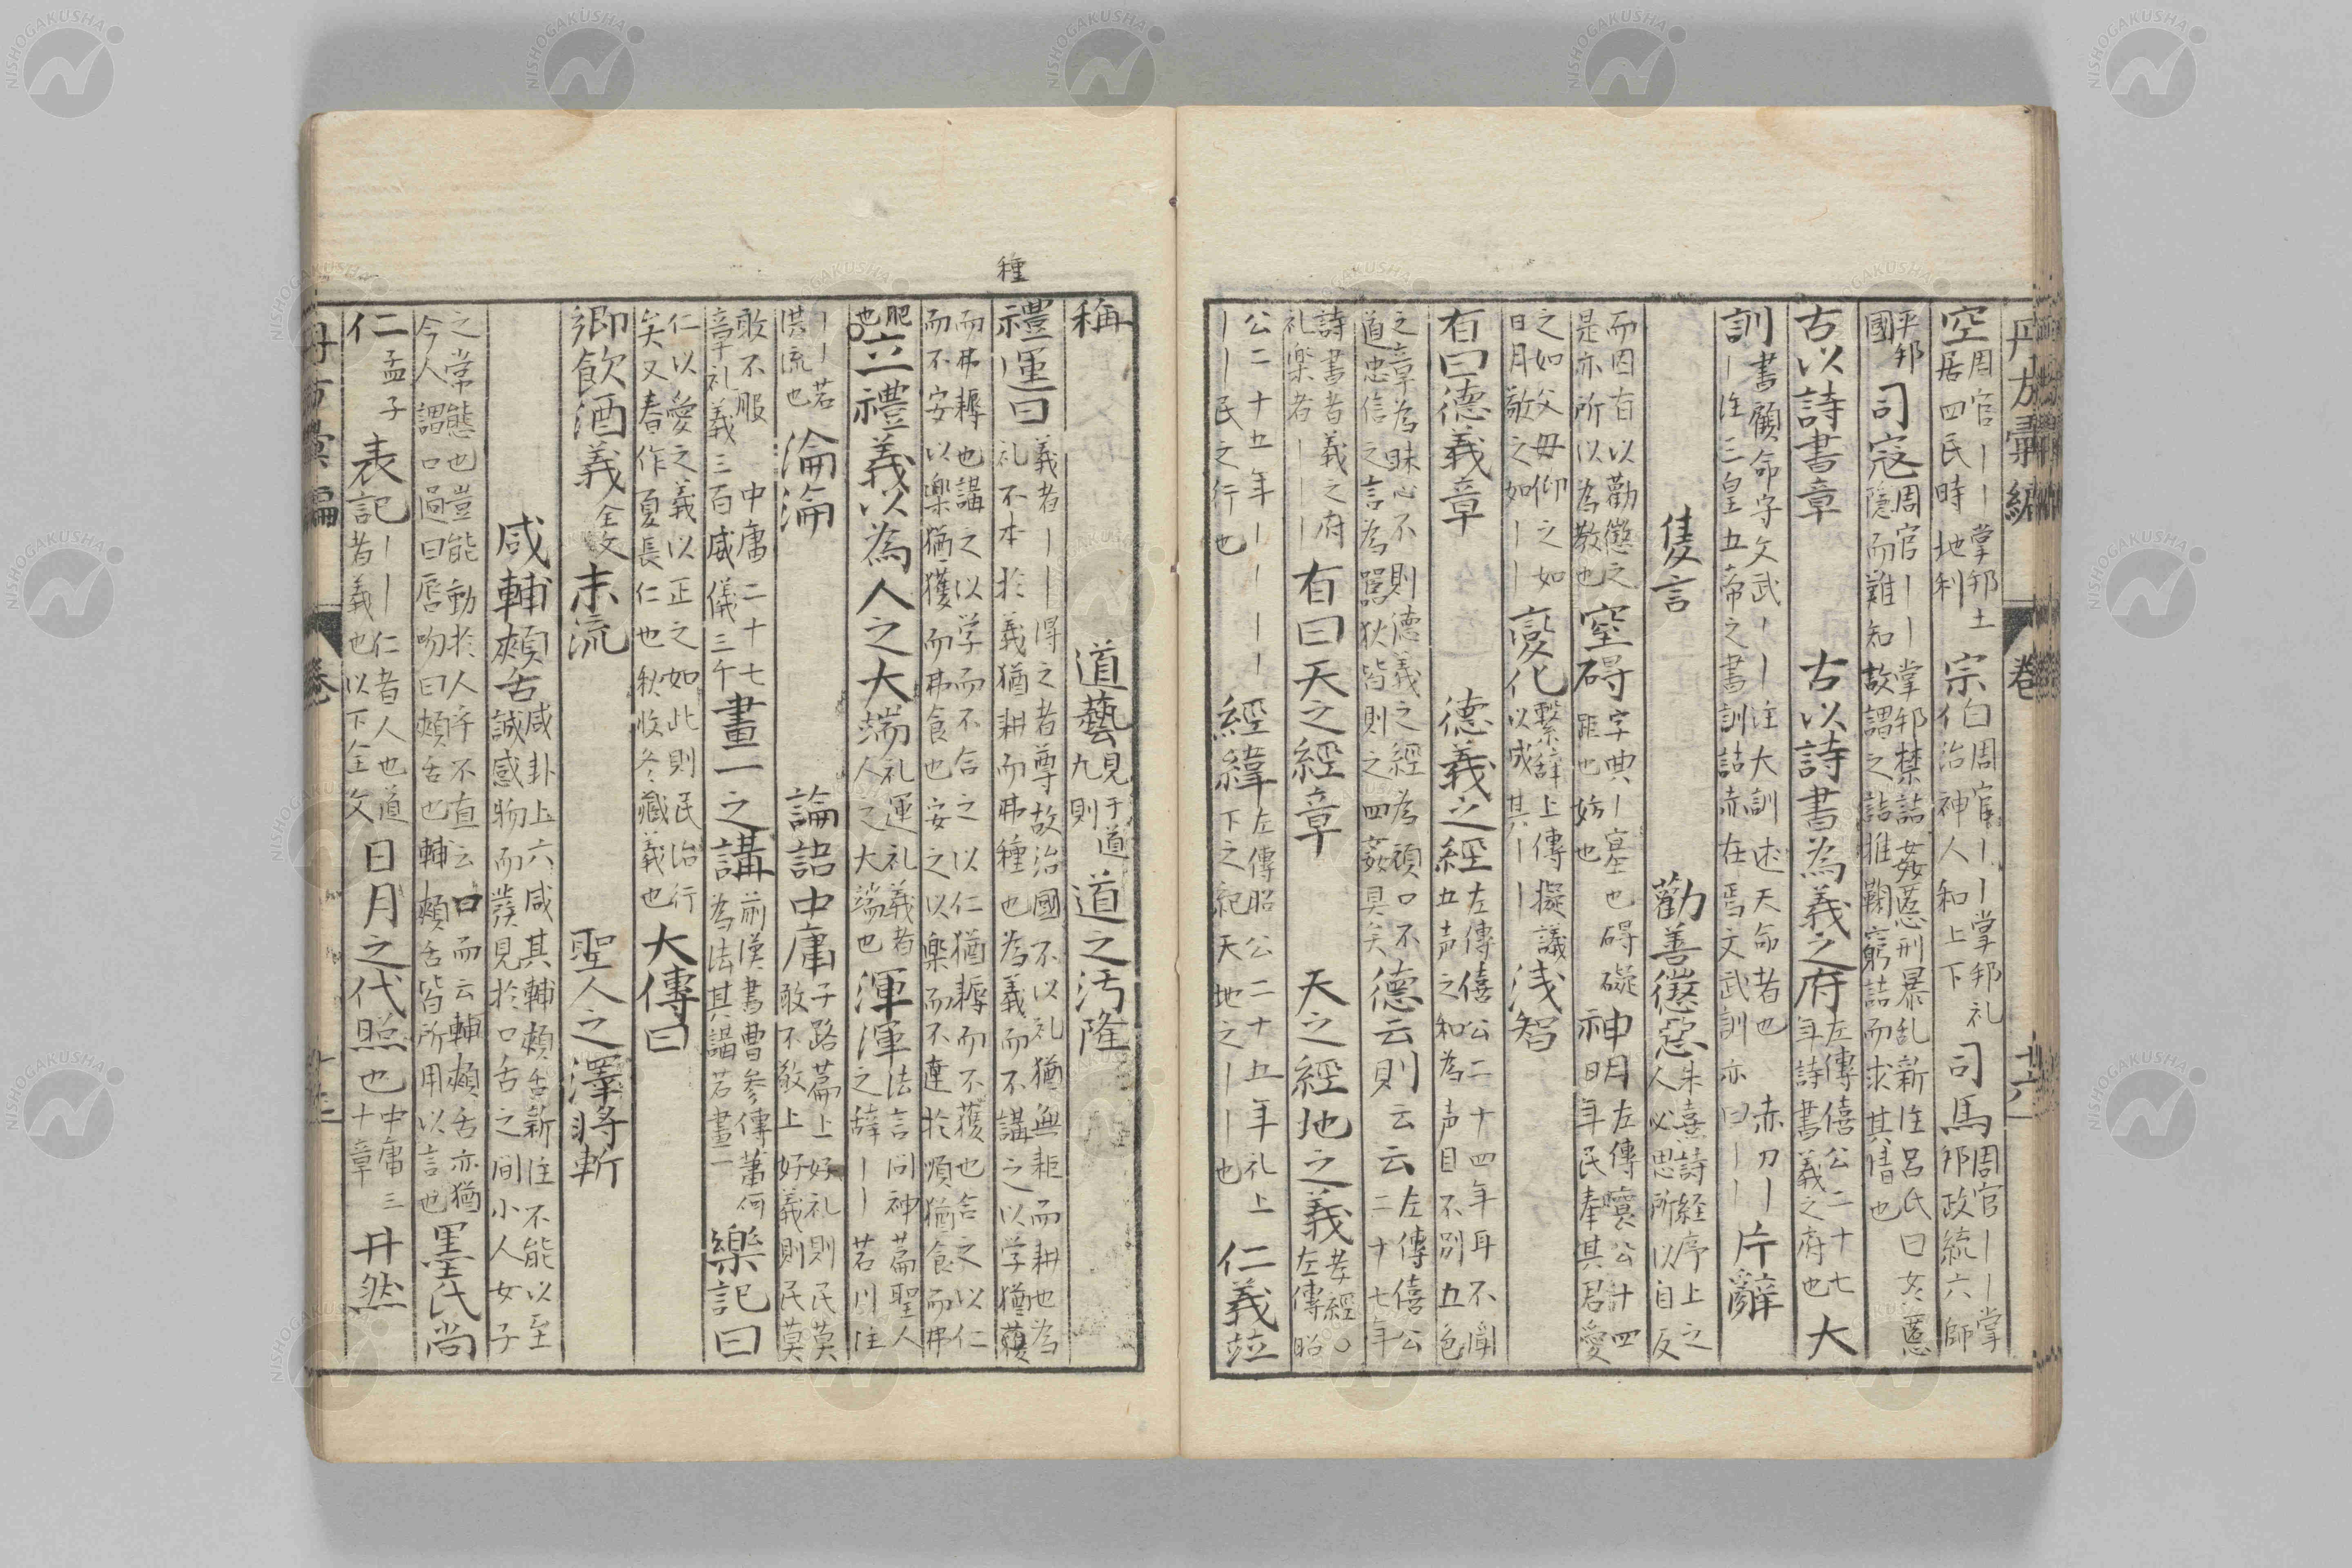 空周官丨丨掌邦土居四民時地利 宗伯周官丨丨掌邦礼治神人和上下 司馬周官丨丨掌邦政統六師
平邦國 司寇周官丨丨掌邦禁詰姦慝刑暴乱新注呂氏曰姦慝隱而難知故謂之詰推鞠窮詰而求其情也
古以詩書章 古以詩書為義之府左傳僖公二十七年詩書義之府也 大
訓書顧命守文武丨丨注大訓述天命者也 赤刀丨丨注三皇五帝之書訓誥赤在焉文武訓亦曰丨丨 片辭
隻言 勸善懲惡朱熹詩経序上之人必思所以自反
而因有以勸懲之是亦所以為教也 窒碍字典丨塞也碍礙距也妨也 神明左傳襄公十四年民奉其君愛
之如父母仰之如日月敬之如丨丨 變化繫辞上傳擬議以成其丨丨 浅智
有曰德義章 德義之經左傳僖公二十四年耳不聞五声之和為声目不別五色
之章為昧心不則德義之經為頑口不道忠信之言為嚚狄皆則之四姦具矣 德云則云云左傳僖公二十七年
詩書者義之府礼楽者丨丨丨 有曰天之經章 天之經地之義孝經〇左傳昭
公二十五年丨丨丨丨丨丨民之行也 經緯左傳昭公二十五年礼上下之紀天地之丨丨也 仁義竝
稱 道藝見于道九則 道之汚隆
種
禮運曰義者丨丨得之者尊故治國不以礼猶無耜而耕也為礼不本於義猶耕而弗種也為義而不講之以学猶穫
而弗耨也講之以学而不合之以仁猶耨而不穫也合之以仁而不安以樂猶獲而弗食也安之以樂而不達於順猶食而弗
肥也〇立禮義以為人之大端礼運礼義者人之大端也 渾渾法言問神篇聖人之辞丨丨若川注
丨丨若洪流也 淪淪 論語中庸子路篇上好礼則民莫敢不敬上好義則民莫
敢不服 中庸二十七章礼義三百威儀三千 畫一之講前漢書曹参傳蕭何為法其講若畫一 樂記曰
仁以愛之義以正之如此則民治行矣又春作夏長仁也秋收冬藏義也 大傳曰
鄉飲酒義全文 末流 聖人之澤將斬
咸輔頰舌咸卦上六咸其輔頰舌新注不能以至誠感物而發見於口舌之間小人女子
之常態也豈能動於人乎不直云口而云輔頰舌亦猶今人謂口過曰唇吻曰頰舌也輔頰舌皆所用以言也 墨氏尚
仁孟子 表記丨丨仁者人也道者義也以下全文 日月之代照也中庸三十章 井然